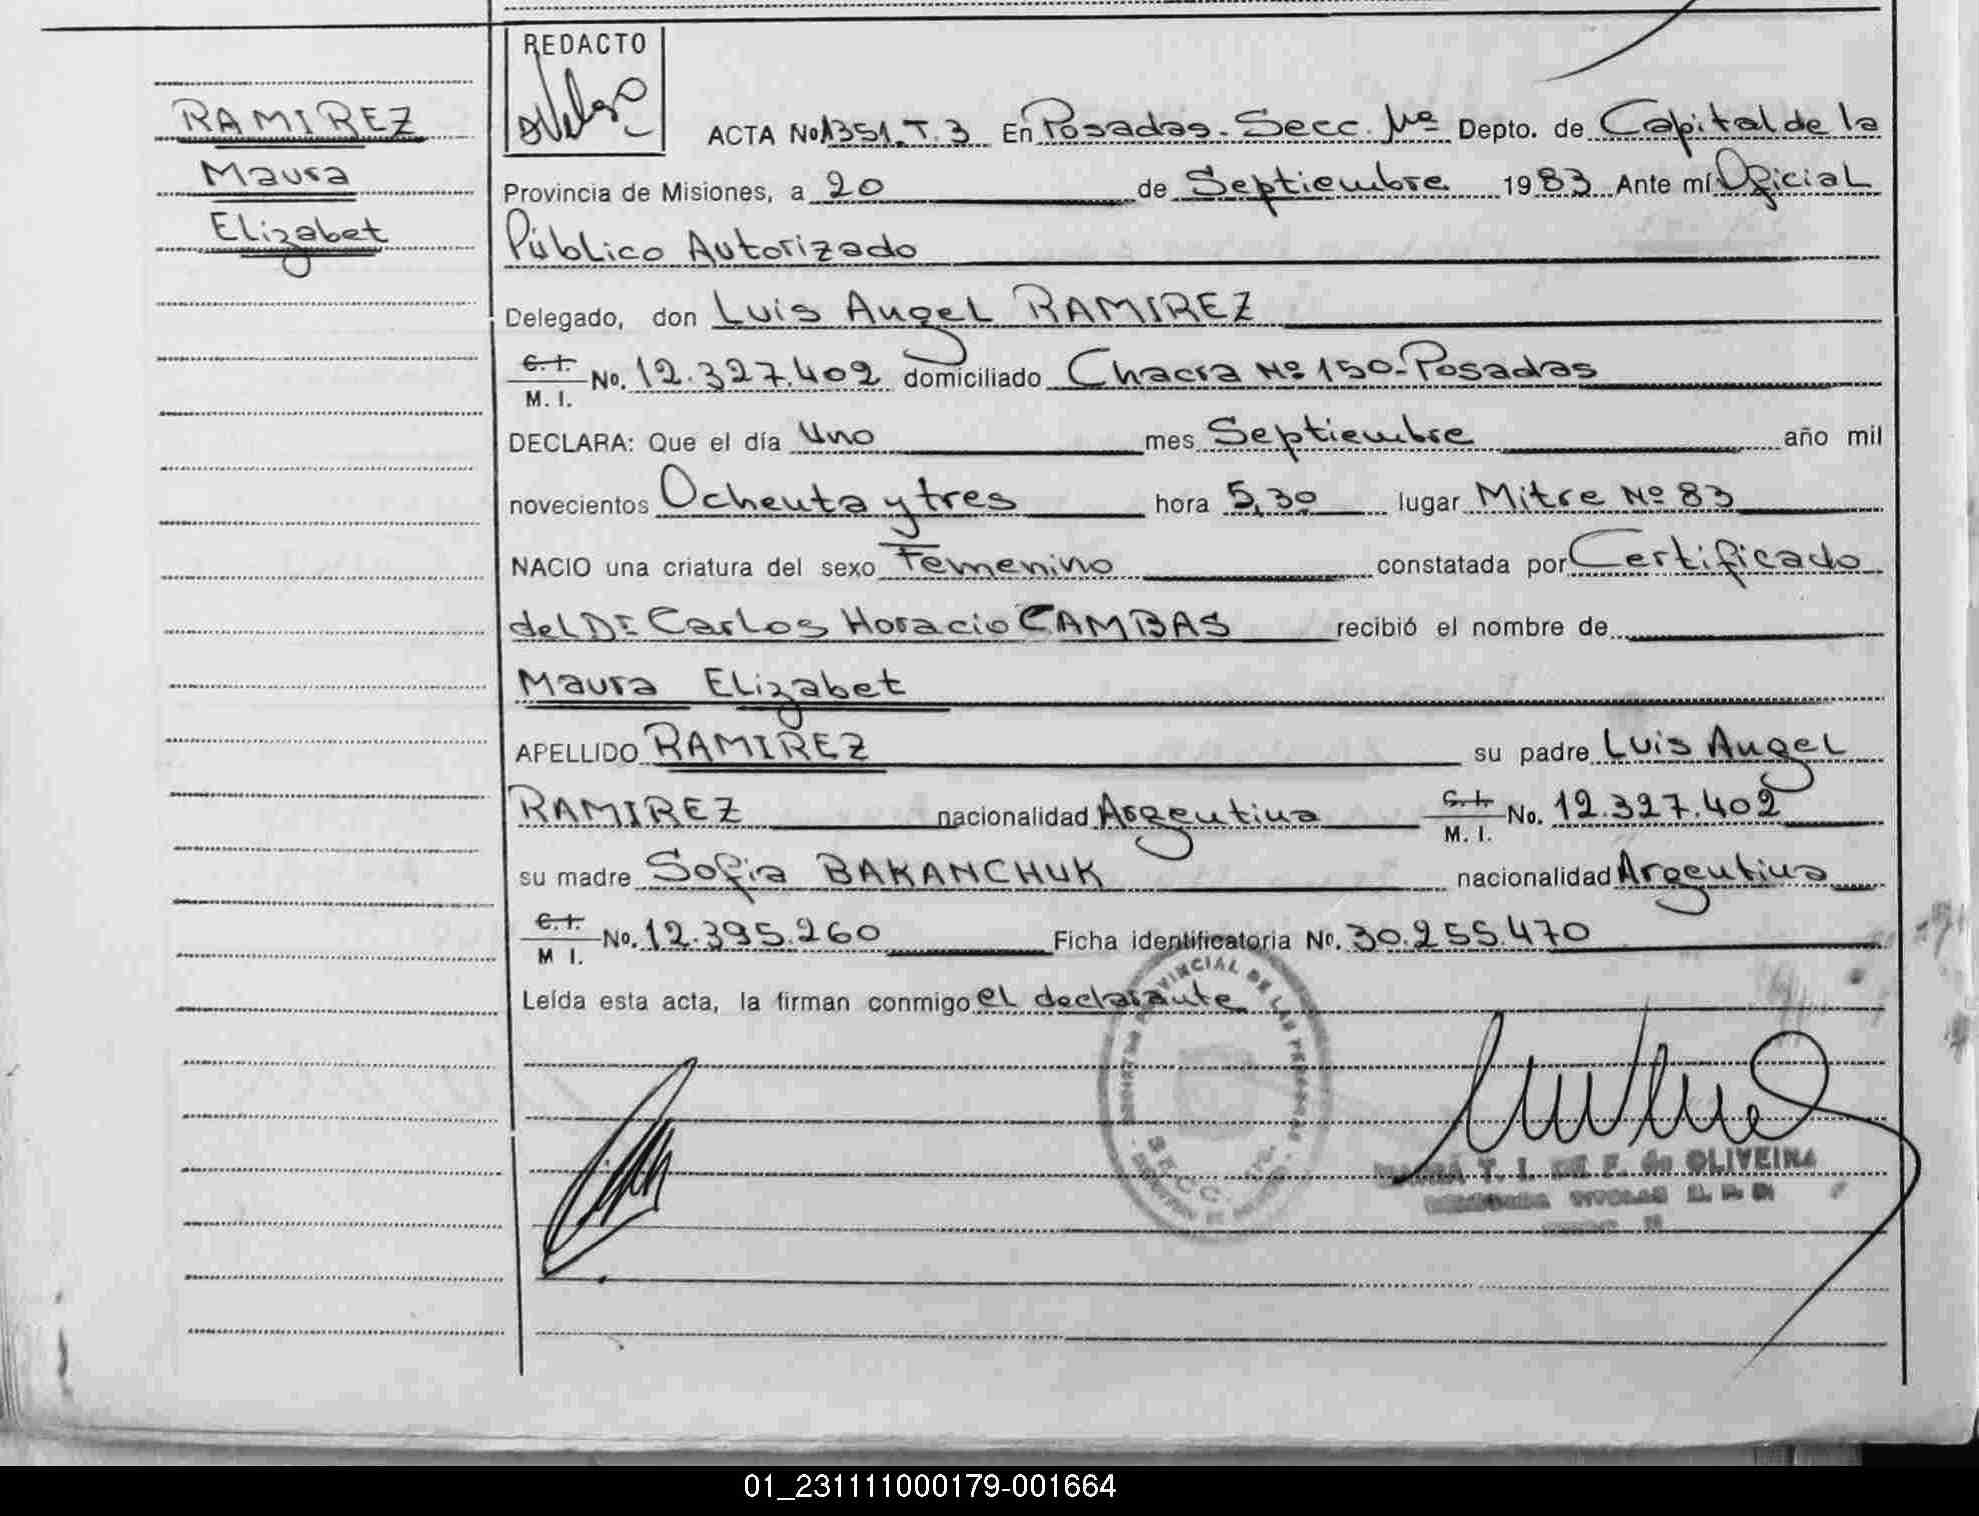 REDACTO
RAMIREZ
Maura
Elizabet
ACTA No 1351. T. 3 En Posadas. Secc. Depto. de Capital de la
Provincia de Misiones, a 20 de Septiembre 1983 Ante mí Oficial
Público Autorizado
Delegado, don Luis Angel RAMIREZ
C. I. M. I. No. 12.327.402 domiciliado Chacra Nº 150-Posadas
DECLARA: Que el día Uno mes Septiembre año mil
novecientos Ochenta y tres hora 5,30 lugar Mitre Nº 83
NACIO una criatura del sexo Femenino constatada por Certificado
del Dr Carlos Horacio CAMBAS recibió el nombre de
Maura Elizabet
APELLIDO RAMIREZ su padre Luis Angel
RAMIREZ nacionalidad Argentina C. I. M. I. No. 12.327.402
su madre Sofia BAKANCHUK nacionalidad Argentina
C. I. M I. No. 12.395.260 Ficha identificatoria No. 30.255.470
Leída esta acta, la firman conmigo el declarante
PROVINCIAL DE LAS PERSONAS
SECC.
T. I. DE F. de OLIVEIRA
01_231111000179-001664